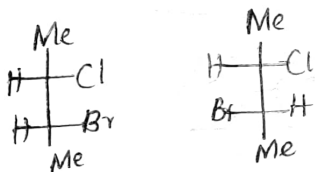 Me
H Cl
H Br
Me
Me
H Cl
Br H
Me